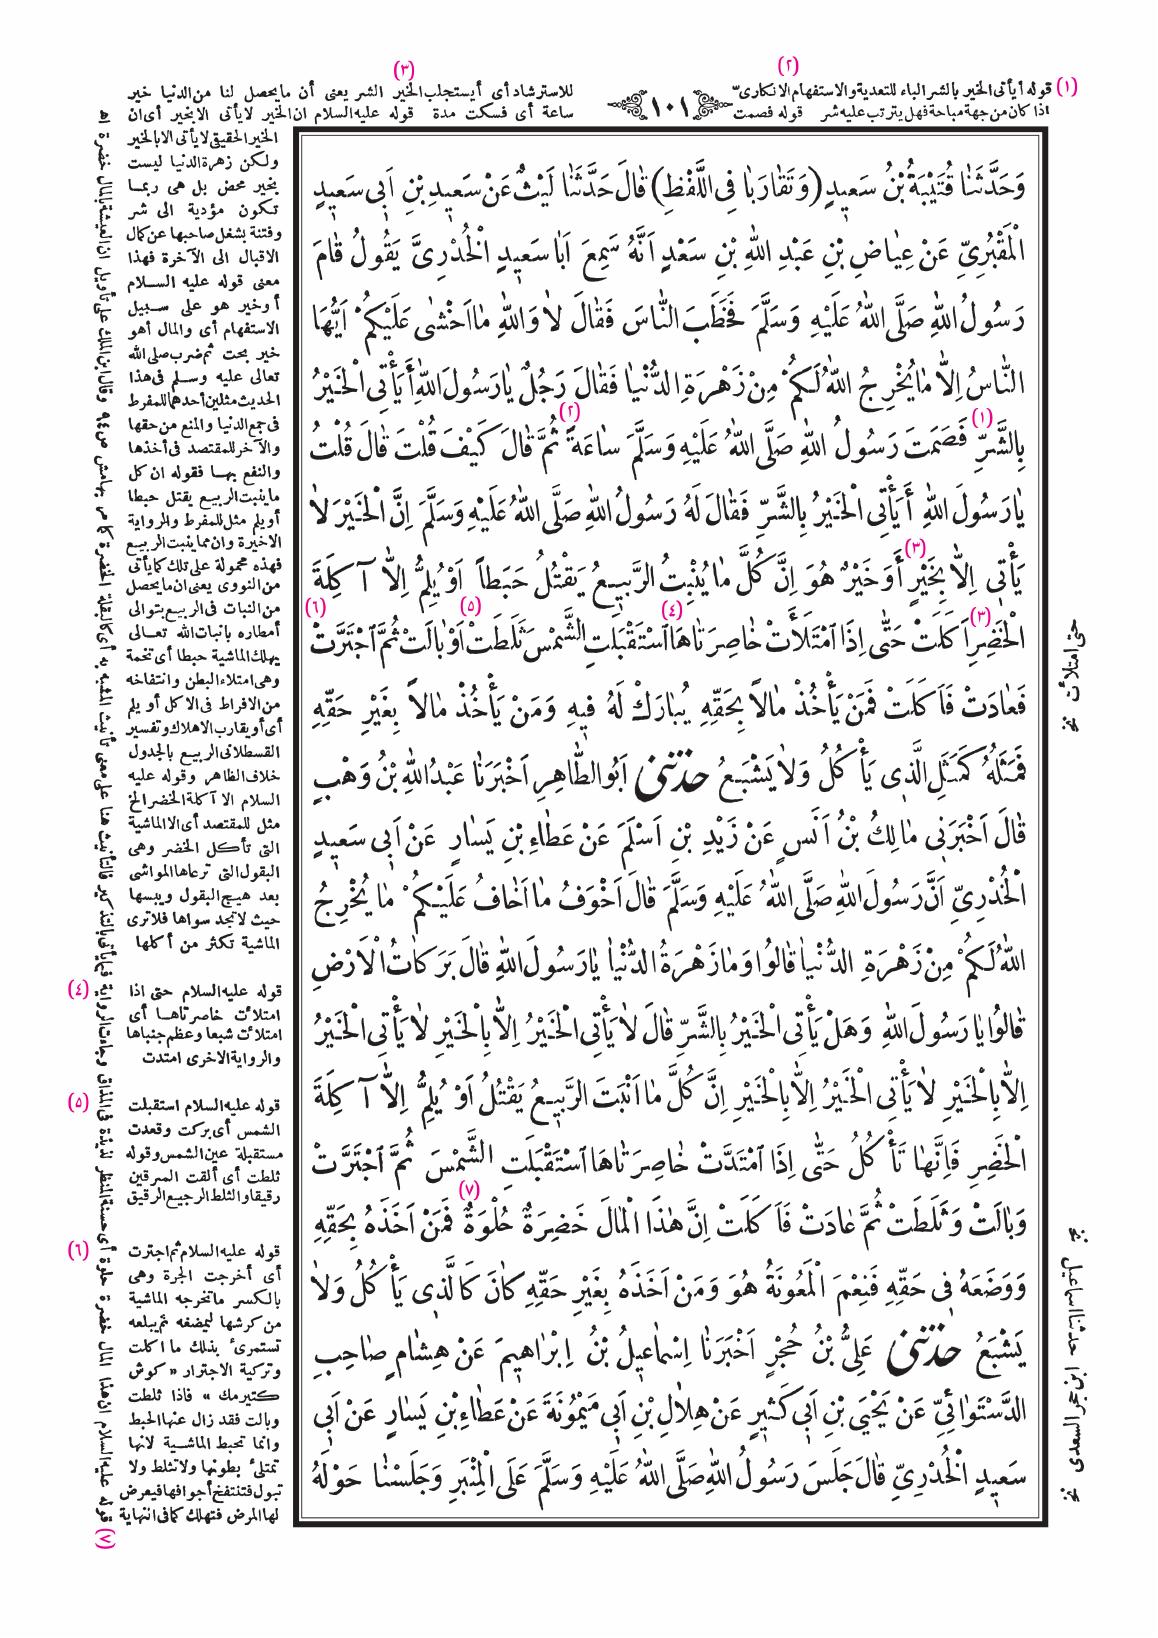 (١) قوله أيأتى الخير بالشر الباء للتعدية والاستفهام الانكارىّ
اذا كان من جهة مباحة فهل يترتب عليه شر (٢) قوله فصمت
١٠١
للاسترشاد أى أيستجلب الخير الشر يعنى أن ما يحصل لنا من الدنيا خير
ساعة أى فسكت مدة (٣) قوله عليه السلام ان الخير لا يأتى الا بخير أى ان
وَحَدَّثَنَا قُتَيْبَةُ بْنُ سَعِيدٍ (وَتَقَارَبَا فِى اللَّفْظِ) قَالَ حَدَّثَنَا لَيْثٌ عَنْ سَعِيدِ بْنِ اَبِى سَعِيدٍ
الْمَقْبُرِىِّ عَنْ عِيَاضِ بْنِ عَبْدِ اللّٰهِ بْنِ سَعْدٍ اَنَّهُ سَمِعَ اَبَا سَعِيدٍ الْخُدْرِىَّ يَقُولُ قَامَ
رَسُولُ اللّٰهِ صَلَّى اللّٰهُ عَلَيْهِ وَسَلَّمَ فَخَطَبَ النَّاسَ فَقَالَ لَا وَاللّٰهِ مَا اَخْشٰى عَلَيْكُمْ اَيُّهَا
النَّاسُ اِلَّا مَا يُخْرِجُ اللّٰهُ لَكُمْ مِنْ زَهْرَةِ الدُّنْيَا فَقَالَ رَجُلٌ يَا رَسُولَ اللّٰهِ أَيَأْتِى الْخَيْرُ
بِالشَّرِّ (١) فَصَمَتَ رَسُولُ اللّٰهِ صَلَّى اللّٰهُ عَلَيْهِ وَسَلَّمَ سَاعَةً (٢) ثُمَّ قَالَ كَيْفَ قُلْتَ قَالَ قُلْتُ
يَا رَسُولَ اللّٰهِ أَيَأْتِى الْخَيْرُ بِالشَّرِّ فَقَالَ لَهُ رَسُولُ اللّٰهِ صَلَّى اللّٰهُ عَلَيْهِ وَسَلَّمَ اِنَّ الْخَيْرَ لَا
يَأْتِى اِلَّا بِخَيْرٍ (٣) أَوَخَيْرٌ هُوَ اِنَّ كُلَّ مَا يُنْبِتُ الرَّبِيعُ يَقْتُلُ حَبَطًا اَوْ يُلِمُّ اِلَّا آكِلَةَ
الْخَضِرِ (٣) اَكَلَتْ حَتّٰى اِذَا امْتَلَأَتْ خَاصِرَتَاهَا (٤) اسْتَقْبَلَتِ الشَّمْسَ ثَلَطَتْ (٥) اَوْ بَالَتْ ثُمَّ اجْتَرَّتْ (٦)
فَعَادَتْ فَاَكَلَتْ فَمَنْ يَأْخُذْ مَالًا بِحَقِّهِ يُبَارَكْ لَهُ فِيهِ وَمَنْ يَأْخُذْ مَالًا بِغَيْرِ حَقِّهِ
فَمَثَلُهُ كَمَثَلِ الَّذِى يَأْكُلُ وَلَا يَشْبَعُ حَدَّثَنِى اَبُو الطَّاهِرِ اَخْبَرَنَا عَبْدُ اللّٰهِ بْنُ وَهْبٍ
قَالَ اَخْبَرَنِى مَالِكُ بْنُ اَنَسٍ عَنْ زَيْدِ بْنِ اَسْلَمَ عَنْ عَطَاءِ بْنِ يَسَارٍ عَنْ اَبِى سَعِيدٍ
الْخُدْرِىِّ اَنَّ رَسُولَ اللّٰهِ صَلَّى اللّٰهُ عَلَيْهِ وَسَلَّمَ قَالَ اَخْوَفُ مَا اَخَافُ عَلَيْكُمْ مَا يُخْرِجُ
اللّٰهُ لَكُمْ مِنْ زَهْرَةِ الدُّنْيَا قَالُوا وَمَا زَهْرَةُ الدُّنْيَا يَا رَسُولَ اللّٰهِ قَالَ بَرَكَاتُ الْاَرْضِ
قَالُوا يَا رَسُولَ اللّٰهِ وَهَلْ يَأْتِى الْخَيْرُ بِالشَّرِّ قَالَ لَا يَأْتِى الْخَيْرُ اِلَّا بِالْخَيْرِ لَا يَأْتِى الْخَيْرُ
اِلَّا بِالْخَيْرِ لَا يَأْتِى الْخَيْرُ اِلَّا بِالْخَيْرِ اِنَّ كُلَّ مَا اَنْبَتَ الرَّبِيعُ يَقْتُلُ اَوْ يُلِمُّ اِلَّا آكِلَةَ
الْخَضِرِ فَاِنَّهَا تَأْكُلُ حَتّٰى اِذَا امْتَدَّتْ خَاصِرَتَاهَا اسْتَقْبَلَتِ الشَّمْسَ ثُمَّ اجْتَرَّتْ
وَبَالَتْ وَثَلَطَتْ ثُمَّ عَادَتْ فَاَكَلَتْ اِنَّ هٰذَا الْمَالَ خَضِرَةٌ حُلْوَةٌ (٧) فَمَنْ اَخَذَهُ بِحَقِّهِ
وَوَضَعَهُ فِى حَقِّهِ فَنِعْمَ الْمَعُونَةُ هُوَ وَمَنْ اَخَذَهُ بِغَيْرِ حَقِّهِ كَانَ كَالَّذِى يَأْكُلُ وَلَا
يَشْبَعُ حَدَّثَنِى عَلِىُّ بْنُ حُجْرٍ اَخْبَرَنَا اِسْمَاعِيلُ بْنُ اِبْرَاهِيمَ عَنْ هِشَامٍ صَاحِبِ
الدَّسْتَوَائِىِّ عَنْ يَحْيَى بْنِ اَبِى كَثِيرٍ عَنْ هِلَالِ بْنِ اَبِى مَيْمُونَةَ عَنْ عَطَاءِ بْنِ يَسَارٍ عَنْ اَبِى
سَعِيدٍ الْخُدْرِىِّ قَالَ جَلَسَ رَسُولُ اللّٰهِ صَلَّى اللّٰهُ عَلَيْهِ وَسَلَّمَ عَلَى الْمِنْبَرِ وَجَلَسْنَا حَوْلَهُ
الخير الحقيقى لا يأتى الا بالخير
ولكن زهرة الدنيا ليست
بخير محض بل هى ربما
تكون مؤدية الى شر
وفتنة بشغل صاحبها عن كمال
الاقبال الى الآخرة فهذا
معنى قوله عليه السلام
أوخير هو على سبيل
الاستفهام أى والمال أهو
خير بحت ثم ضرب صلى الله
تعالى عليه وسلم فى هذا
الحديث مثلين أحدهما للمفرط
فى جمع الدنيا والمنع من حقها
والآخر للمقتصد فى أخذها
والنفع بها فقوله ان كل
ما ينبت الربيع يقتل حبطا
أو يلم مثل للمفرط والرواية
الاخيرة وان مما ينبت الربيع
فهذه محمولة على تلك كما يأتى
من النووى يعنى ان ما يحصل
من النبات فى الربيع بتوالى
أمطاره بانبات الله تعالى
يهلك الماشية حبطا أى تخمة
وهى امتلاء البطن وانتفاخه
من الافراط فى الاكل أو يلم
أى أو يقارب الاهلاك وتفسير
القسطلانى الربيع بالجدول
خلاف الظاهر وقوله عليه
السلام الا آكلة الخضر الخ
مثل للمقتصد أى الا الماشية
التى تأكل الخضر وهى
البقول التى ترعاها المواشى
بعد هيج البقول ويبسها
حيث لا تجد سواها فلا ترى
الماشية تكثر من أكلها
(٤) قوله عليه السلام حتى اذا
امتلات خاصرتاها أى
امتلات شبعا وعظم جنباها
والرواية الاخرى امتدت
(٥) قوله عليه السلام استقبلت
الشمس أى بركت وقعدت
مستقبلة عين الشمس وقوله
ثلطت أى ألقت السرقين
رقيقا والثلط الرجيع الرقيق
(٦) قوله عليه السلام ثم اجترت
أى أخرجت الجرة وهى
بالكسر ما تخرجه الماشية
من كرشها ليمضغه ثم يبلعه
تستمرئ بذلك ما اكلت
وتركية الاجترار « كوش
كتيرمك » فاذا ثلطت
وبالت فقد زال عنها الحبط
وانما تحبط الماشية لانها
تمتلئ بطونها ولا تثلط ولا
تبول فتنتفخ أجوافها فيعرض
لها المرض فتهلك كما فى النهاية
(٧) قوله عليه السلام ان هذا المال خضرة حلوة أى حسنة المنظر لذيذة فى المذاق وجاءت الرواية فيما يأتى بالتذكير فالتأنيث هنا على معنى تأنيث المشبه به أى كالبقلة الخضرة كما مر بهامش ص ٩٤ وقال ابن الملك على تأويل ان العيشة بالمال خضرة اه
حتى امتلأت نخ
نخ
حدثنا اسماعيل
ابن حجر السعدى نخ